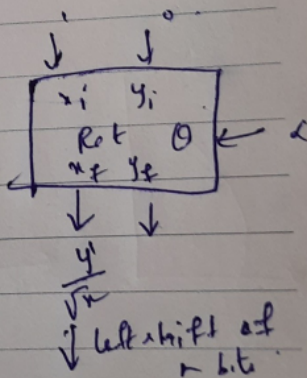 1 0
xi yi
Rot θ
xf yf
y'
√x
left shift of
r bits